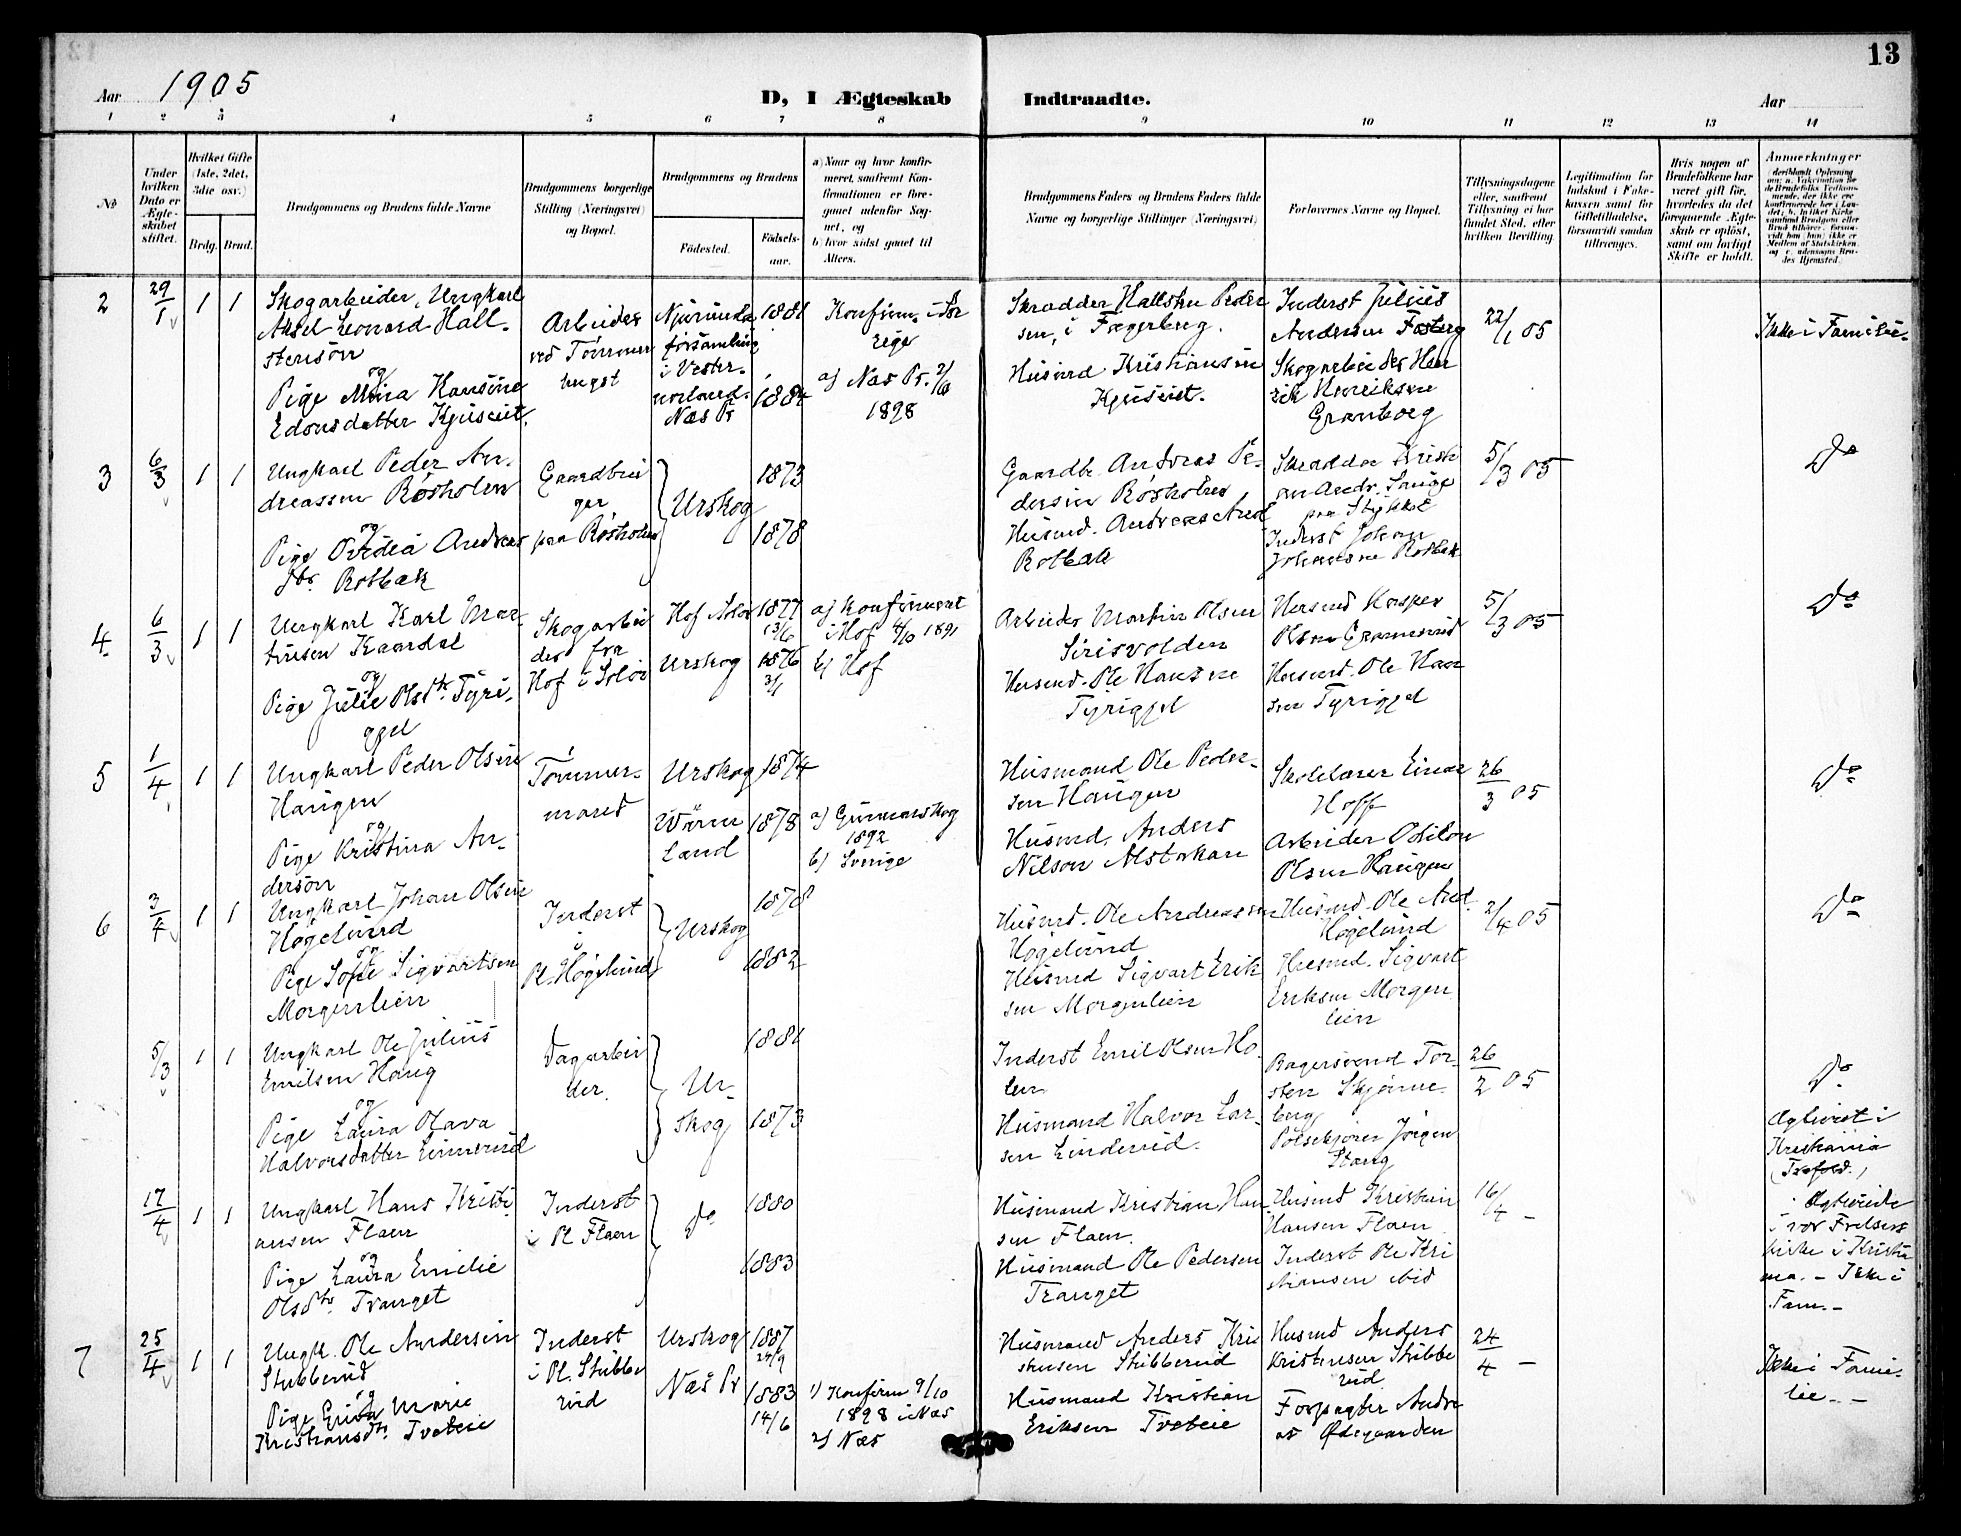 13
Aar 1905
D, I Ægteskab Indtraadte.
Aar
1 2 3 4 5 6 7 8 9 10 11 12 13 14
№
Under hvilken Dato er Ægteskabet stiftet.
Hvilket Gifte (1ste, 2det, 3die osv.)
Brdg. Brud.
Brudgommens og Brudens fulde Navne
Brudgommens borgerlige Stilling (Næringsvei) og Bopæl.
Brudgommens og Brudens
Fødested.
Fødselsaar.
a) Naar og hvor konfirmeret, saafremt Konfirmationen er foregaaet udenfor Sognet, og
b) hvor sidst gaaet til Alters.
Brudgommens Faders og Brudens Faders fulde Navne og borgerlige Stillinger (Næringsvei)
Forlovernes Navne og Bopæl.
Tillysningsdagene eller, saafremt Tillysning ei har fundet Sted, efter hvilken Bevilling.
Legitimation for Indskud i Enkekassen samt for Giftetilladelse, forsaavidt saadan tiltrænges.
Hvis nogen af Brudefolkene har været gift før, hvorledes da det foregaaende Ægteskab er opløst, samt om lovligt Skifte er holdt.
Anmerkninger
2
29/1
1 1
Skogarbeider, Ungkarl
Aksel Leonard Hall-
stensön
og
Pige Mina Hansine
Edonsdatter Kjuserut.
Arbeider
ved Tömmer
hugst
Njurunda
församling
i Vester-
norland.
Næs Pr
1881
1884
Konfirm. i Sve
rige
a) Næs Pr. 2/10
1898
Skrædder Hallsten Peder
sen, i Fagerberg.
Husmd Kristiansen
Kjuserut.
Inderst Julius
Andersen Fosberg
Skogarbeider Hen
rik Henriksen
Granberg
22/1 05
Ikke i Familie.
3
6/3
1 1
Ungkarl Peder An-
dreassen Rösholen
og
Pige Ovidia Andreas
dtr. Rotbæk
Gaardbru
ger
paa Rösholen
Urskog
1873
1878
Gaardbr. Andreas Pe-
dersen Rösholen
Husmd. Andreas And
Rotbæk
Skrædder Kristi
an Andr. Lange
paa Stykket
Inderst Johan
Johansen Rotbæk
5/3 05
Do
4.
6/3
1 1
Ungkarl Karl Mar-
tinsen Kaardal
og
Pige Julie Olsdtr. Tyri-
gjel
Skogarbei
der fra
Hof i Solör
Hof Solör
Urskog
1877
13/6
1876
3/1
a) Konfirmeret
i Hof 4/10 1891
b) Hof
Arbeider Martin Olsen
Sirisvolden
Husmd. Ole Hansen
Tyrigjel
Husmd Kasper
Olsen Grønnerud
Husmd. Ole Han
sen Tyrigjel
5/3 05
Do
5
1/4
1 1
Ungkarl Peder Olsen
Haugen
og
Pige Kristina An-
dersön
Tömmer-
mand
Urskog
Wärm
land
1874
1878
a) Gunnarskog
1892
b) Sverige
Husmand Ole Peder-
sen Haugen
Husmd. Anders
Nilson Alstakan
Skolelærer Einar
Hoff
Arbeider Odilon
Olsen Haugen
26/3 05
Do
6
3/4
1 1
Ungkarl Johan Olsen
Högelund
og
Pige Sofie Sigvartsen
Morgenlien
Inderst
i
Pl. Högelund
Urskog
1878
1882
Husmd. Ole Andreassen
Högelund
Husmd Sigvart Erik
sen Morgenlien
Husmd. Ole And.
Högelund
Husmd. Sigvart
Eriksen Morgen
lien
2/4 05
Do
5/3
1 1
Ungkarl Ole Julius
Emilsen Haug
og
Pige Laura Olava
Halvorsdatter Linnerud
Dagarbei
der.
Ur-
skog
1881
1873
Inderst Emil Olsen Ho-
len
Husmand Halvor Lar-
sen Linderud.
Bagersvend Tor-
sten Skjönne-
berg
Pölsekjörer Jörgen
Stang
26/2 05
Do
Ægteviet i
Kristiania
(Trefold.)
17/4
1 1
Ungkarl Hans Kristi-
ansen Flaen
og
Pige Laura Emilie
Olsdtr. Tranget
Inderst
i Pl Flaen
do
1880
1883
Husmand Kristian Han
sen Flaen.
Husmand Ole Pedersen
Tranget
Husmd Kristian
Hansen Flaen
Inderst Ole Kri
stiansen ibid
16/4 -
Ægteviede
i vor Frelsers
kirke i Kristia
nia. - Ikke i
Fam. -
7
25/4
1 1
Ungk. Ole Andersen
Stubberud
og
Pige Marie
Kristiansdtr. Tveteie
Inderst
i Pl. Stubbe
rud
Urskog
Næs Pr
1887
24/9
1883
14/6
1) Konfirm 9/10
1898 i Næs
2) Næs
Husmand Anders Kri
stensen Stubberud
Husmand Kristian
Eriksen Tveteie
Husmd Anders
Kristensen Stubbe
rud
Forpagter Andre
as Ødegaarden
24/4 -
Ikke i Fami-
lie. -